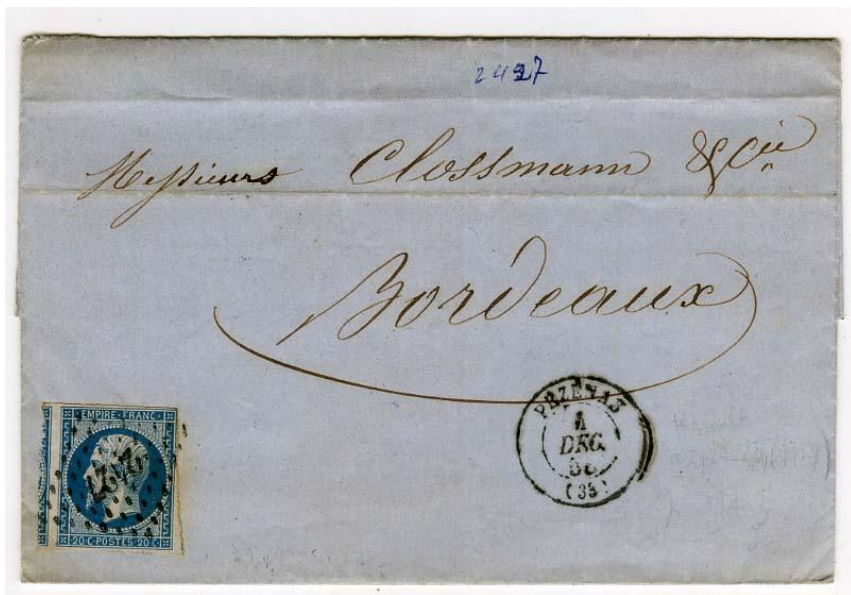 2427
Messieurs Clossmann & Cie
Bordeaux
PEZENAS
1
DEC.
(33)
EMPIRE·FRANC·
2427
20·C·POSTES·20·C·